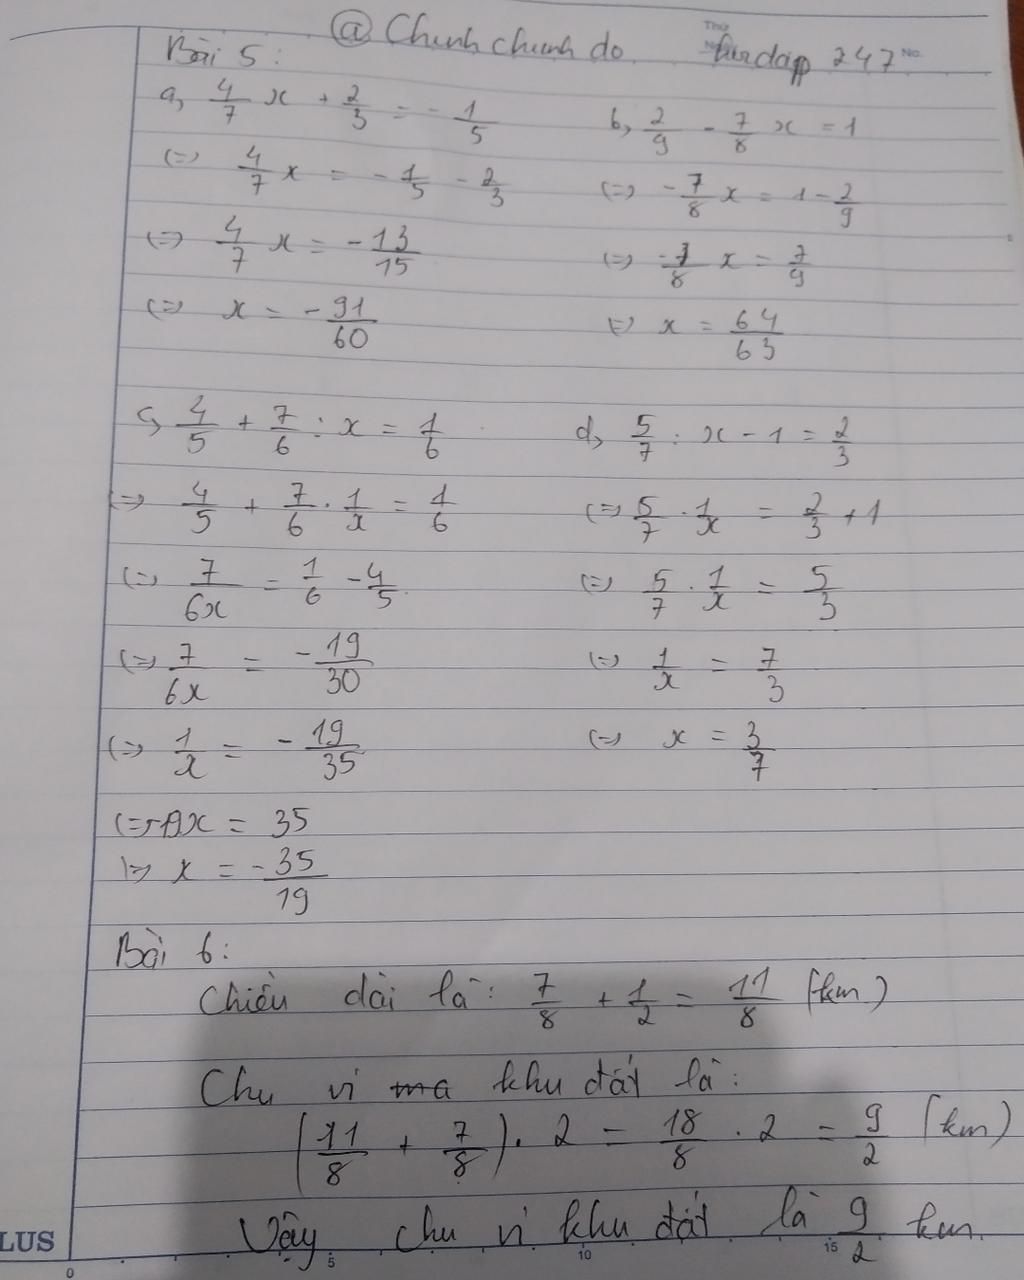 @ Chunhchunh do hoidap 247
Thứ
No.
Bài 5:
a, 4/7 x + 2/3 = - 1/5
(=) 4/7 x = - 1/5 - 2/3
(=) 4/7 x = - 13/15
(=) x = - 91/60
b, 2/9 - 7/8 x = 1
(=) - 7/8 x = 1 - 2/9
(=) -7/8 x = 7/9
(=) x = 64/63
c, 4/5 + 7/6 : x = 1/6
(=) 4/5 + 7/6 . 1/x = 1/6
(=) 7/6x = 1/6 - 4/5
(=) 7/6x = - 19/30
(=) 1/x = - 19/35
(=) -19x = 35
(=) x = - 35/19
d, 5/7 : x - 1 = 2/3
(=) 5/7 . 1/x = 2/3 + 1
(=) 5/7 . 1/x = 5/3
(=) 1/x = 7/3
(=) x = 3/7
Bài 6:
Chiều dài là: 7/8 + 1/2 = 11/8 (km)
Chu vi khu đất là:
(11/8 + 7/8) . 2 = 18/8 . 2 = 9/2 (km)
Vậy chu vi khu đất là 9/2 km.
LUS
0 5 10 15